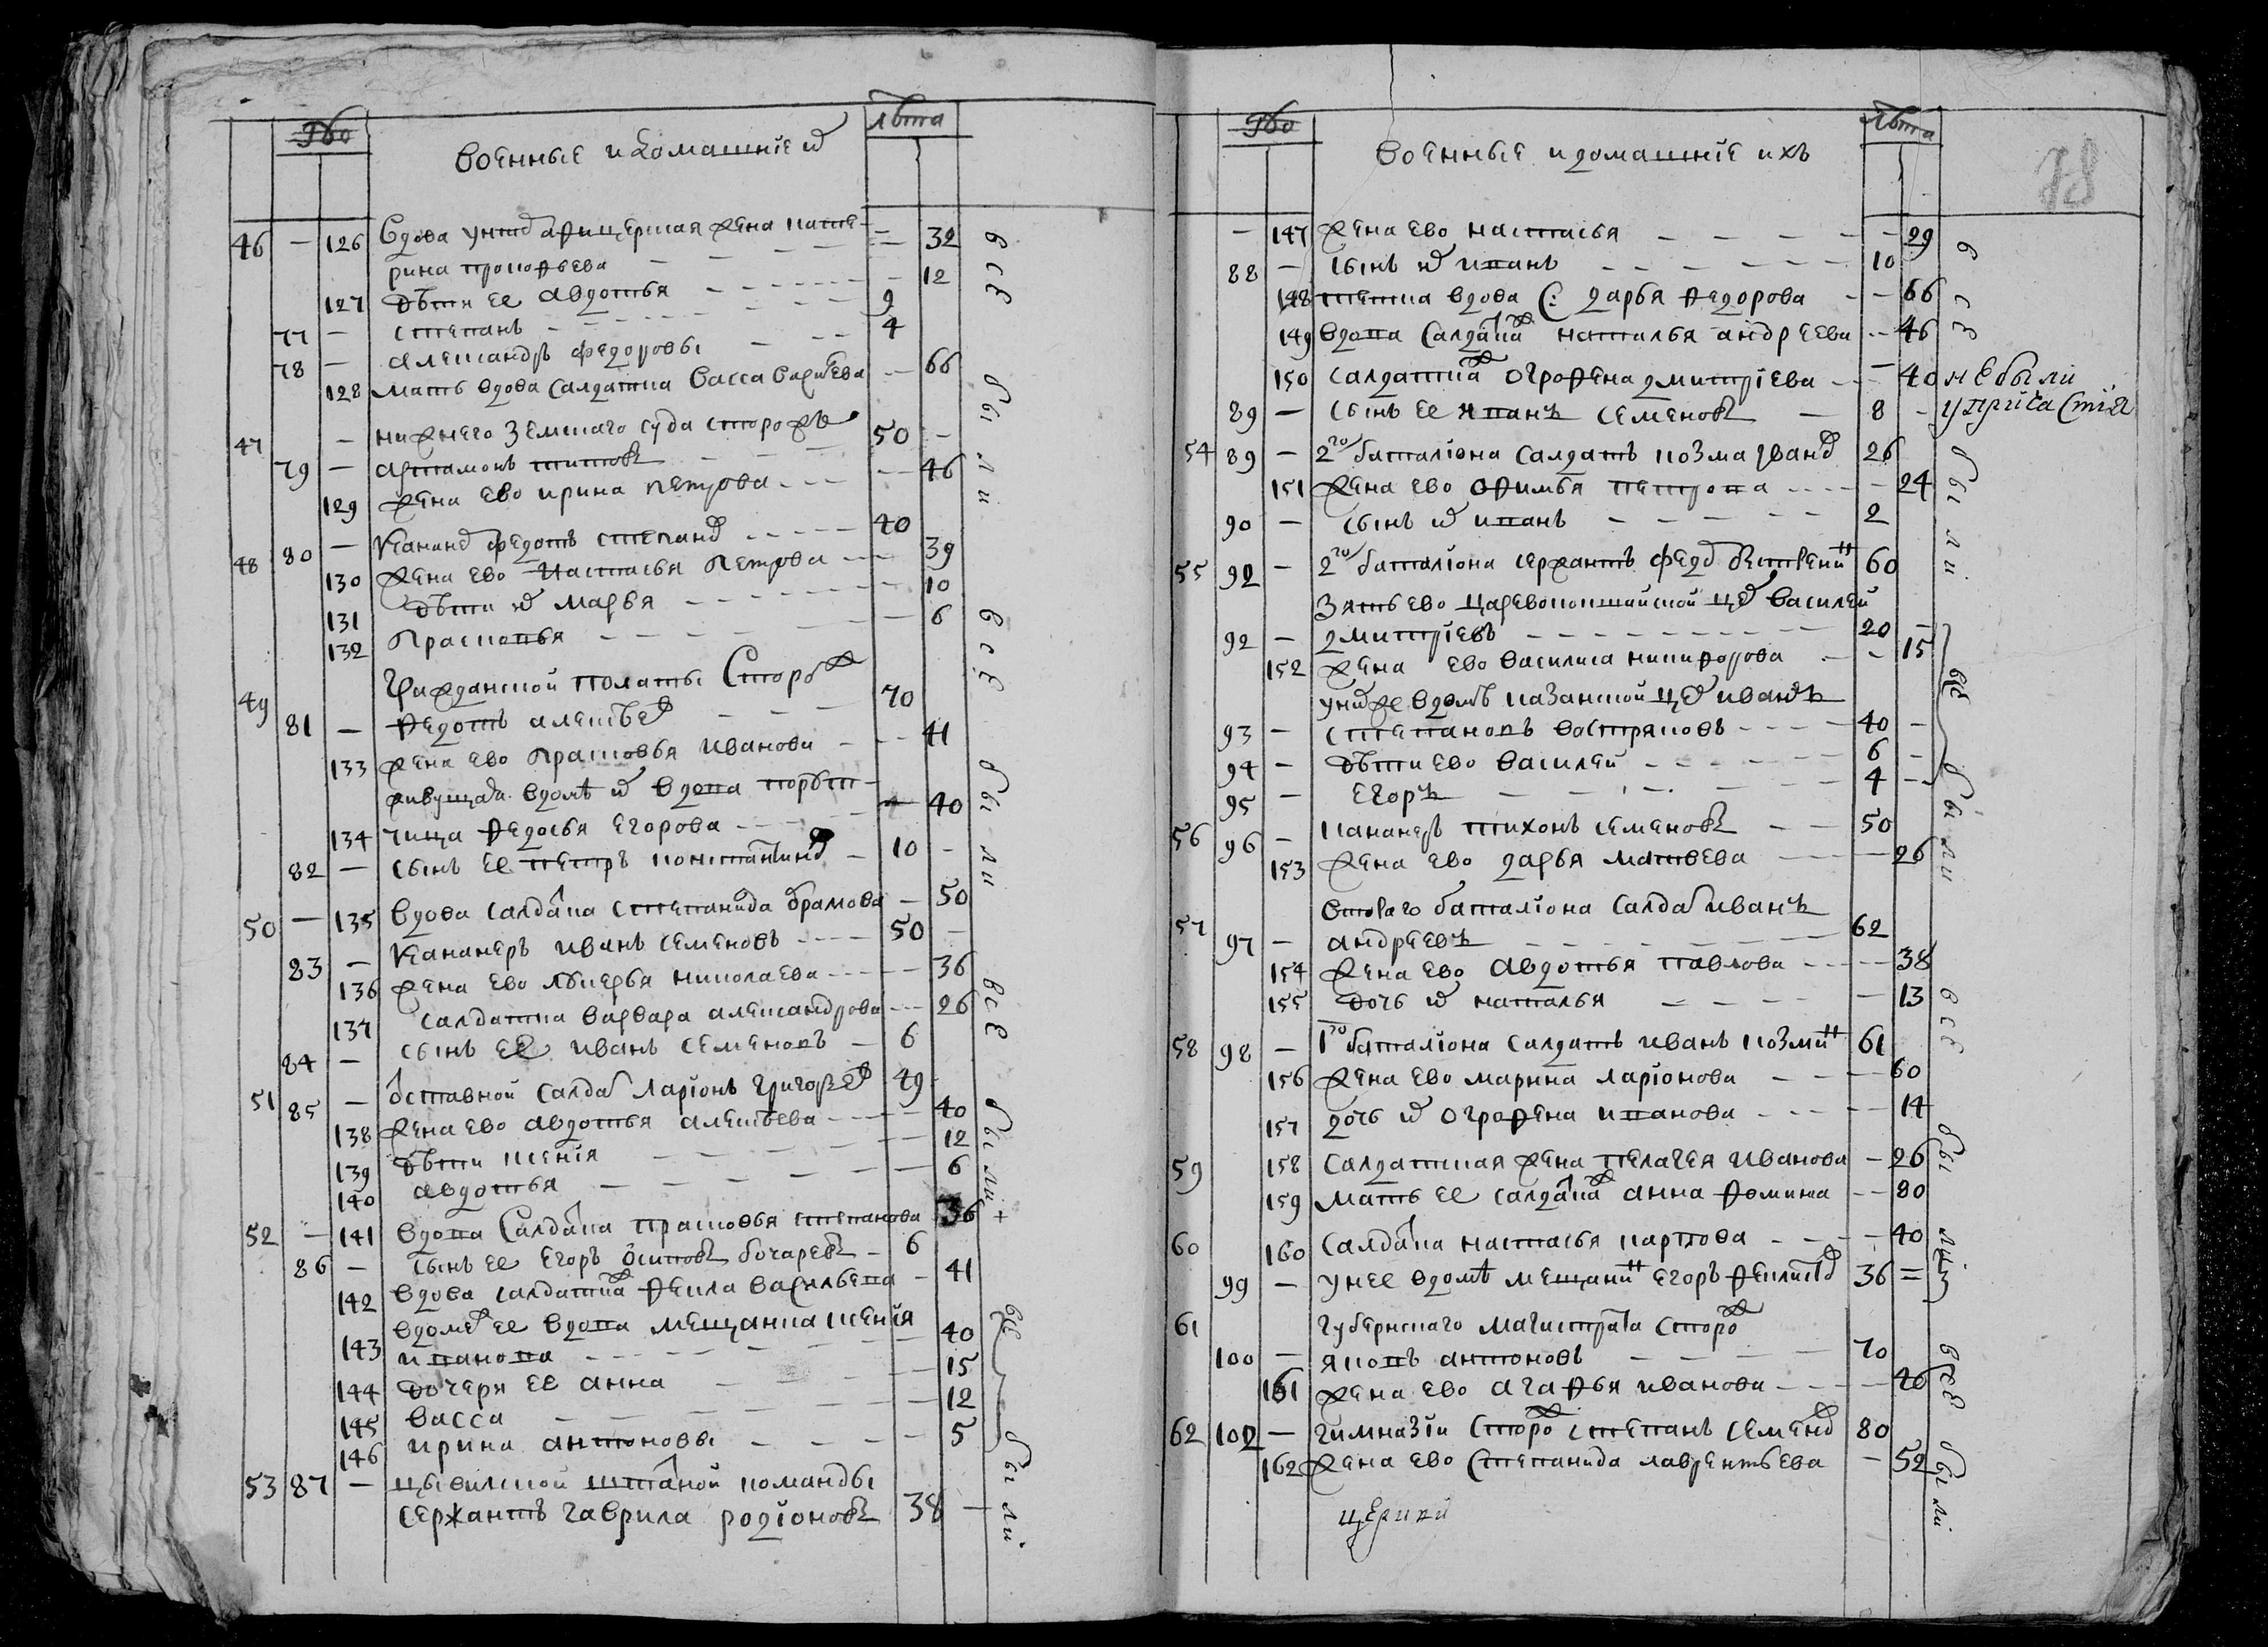 Лѣта
Военные и домашніе их
46 — 126 Вдова унтеръ афицерская жена кате-
рина прокофьева — 32
127 дѣти ее авдотья — 12
77 — степанъ 9
78 — александръ федоровы 4
128 мать вдова салдатка васса — 66
47 — нижнего земскаго суда сторожъ
79 — артамонъ титовъ 50 —
129 жена ево ирина петрова — 46
48 80 — канане федотъ степано 40
130 жена ево настасья петрова — 39
131 дѣти их марья — 10
132 прасковья — 6
49 гражданской полаты сторо
81 — федотъ алексѣе 70
133 жена ево прасковья иванова — 41
живущая вдомѣ их вдова порут-
134 чица федосья егорова — 40
82 — сынъ ее петръ константино — 10 —
50 — 135 вдова салдатка степанида абрамова — 50
83 — кананеръ иванъ семеновъ 50 —
136 жена ево лукерья николаева — 36
137 салдатка варвара александрова — 26
84 — сынъ ее иванъ семеновъ — 6
51 85 — отставной салда ларіонъ григорье 49
138 жена ево авдотья алексѣева — 40
139 дѣти ксенія — 12
140 авдотья — 6
52 — 141 вдова салдатка прасковья степанова 36 +
86 — сынъ ее егоръ осиповъ бочаревъ — 6
142 вдова салдатка фекла васильева — 41
вдоме ее вдова мещанка ксенія
143 иванова — 40
144 дочеря ее анна — 15
145 васса — 12
146 ирина антоновы — 5
53 87 — цывилской штатной команды
сержантъ гаврила родіоновъ 38 —
все были
все были
все были
все были
Лѣта
Военные и домашніе ихъ
78
— 147 жена ево настасья — 29
88 — сынъ их иванъ — 10
148 тетка вдова с: дарья федорова — 66
149 вдова салдатка наталья андреева — 46
150 салдатка огрофена дмитріева — 40 небыли
89 — сынъ ее иванъ семеновъ — 8 — упричастія
54 89 — 2го баталіона салдатъ козма ивано 26
151 жена ево офимья петрова — 24
90 — сынъ их иванъ — 2
55 92 — 2го баталіона сержантъ федо 60
зять ево царевококшайской це василей
92 — дмитріевъ 20 —
152 жена ево василиса никифорова — 15
униже вдомѣ казанской це иванъ
93 — степановъ востряковъ 40 —
94 — дѣти ево василей 6 —
95 — егоръ 4 —
56 96 — кананеръ тихонъ семеновъ — 50
153 жена ево дарья матвева — 26
57 втораго баталіона салда иванъ
97 — андреевъ 62
154 жена ево авдотья павлова — 38
155 дочь их наталья — 13
58 98 — 1го баталіона салдатъ иванъ козми 61
156 жена ево марина ларіонова — 60
157 дочь их огрофена иванова — 14
59 158 салдатская жена пелагея иванова — 26
159 мать ее салдатка анна фомина — 80
60 160 салдатка настасья карпова — 40
99 — унее вдомѣ мещани егоръ 36 =
61 губернскаго магистрата сторо
100 — яковъ антоновъ — 70
161 жена ево агафья иванова — 40
62 102 — гимназіи сторо степанъ семено 80
162 жена ево степанида лаврентьева — 52
церкви
все
были
все были
все были
все были